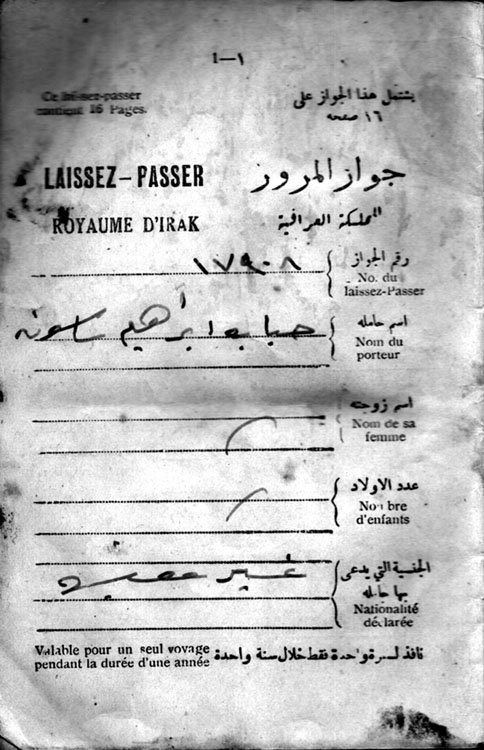 ١—1
Ce laissez-passer
contient 16 Pages.
يشتمل هذا الجواز على
١٦ صفحه
LAISSEZ-PASSER
جواز المرور
ROYAUME D'IRAK
المملكة العراقية
١٧٩٠٨
رقم الجواز
No. du
laissez-Passer
ابراهيم
اسم حامله
Nom du
porteur
اسم زوجته
Nom de sa
femme
عدد الاولاد
Nombre
d'enfants
غير معينه
الجنسية التي يدعى
بها حامله
Nationalité
déclarée
Valable pour un seul voyage
pendant la durée d'une année
نافذ لسفرة واحدة فقط خلال سنة واحدة